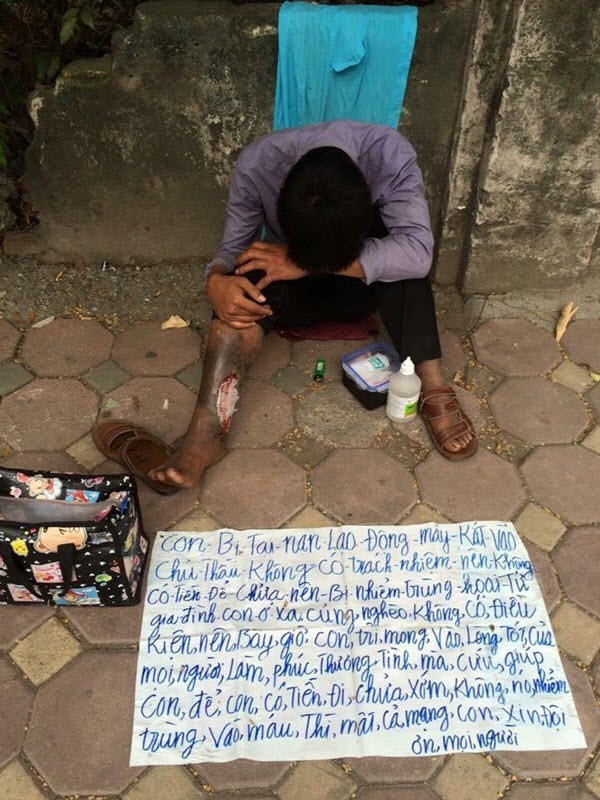 con Bị Tai nan Lao Động máy Kắt Vào
Chủ Thầu Không Có trách nhiệm nên Không
Có Tiền Để Chữa nên Bị nhiễm trùng hoại Tử
gia đình con ở xa cũng nghèo Không Có Điều
Kiện, nên, Bay, giờ, con, trỉ, mong, Vào, Long Tốt, Của
mọi, người, Lam, phúc, Thương Tình, ma, Cứu, giúp
con, để, con, Có, Tiền, Đi, chữa, Xớm, Không, nó, nhiểm
trùng, Vào, máu, Thì, mất, cả, mạng, con, Xin, Đội
ơn, mọi, người